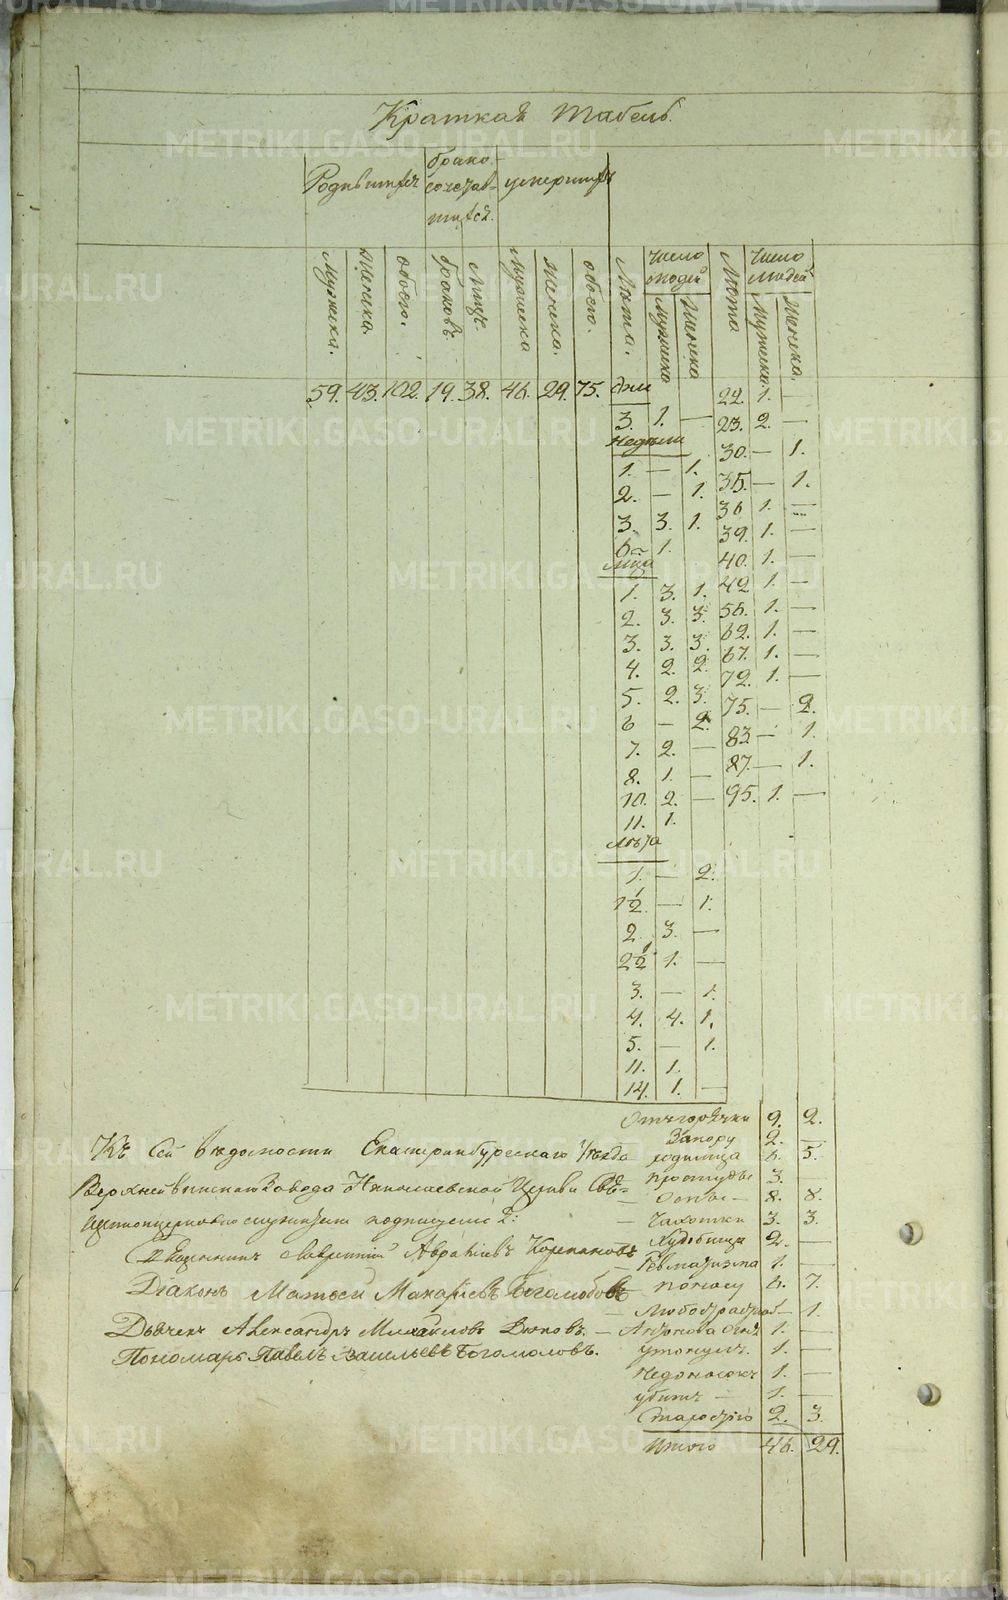 Краткая табель.
Родившихся
брако-
сочетав-
шихся.
умершихъ
мужеска.
женска.
обоего.
браковъ.
лицъ.
мужеска
женска.
обоего.
Лѣта.
Число людей
мужеска
женска
Лѣта
Число людей
мужеска
женска.
59. 43. 102. 19. 38. 46. 29. 75. дни
3. 1. —
Недѣли
1. — 1.
2. — 1.
3. 3. 1.
6. 1.
м҃ца
1. 3. 1.
2. 3. 3.
3. 3. 3.
4. 2. 2.
5. 2. 3.
6 — 2.
7. 2. —
8. 1. —
10. 2. —
11. 1.
лѣта
1. — 2.
1½ — 1.
2. 3. —
2½ 1. —
3. — 1.
4. 4. 1.
5. — 1.
11. 1.
14. 1. —
22. 1. —
23. 2. —
30. — 1.
35. — 1.
36 1. —
39. 1. —
40. 1. —
42 1. —
56. 1. —
62. 1. —
67. 1. —
72. 1. —
75. — 2.
83. — 1.
87. — 1.
95. 1. —
Отъ горячки 9. 2.
Запору 2. —
родимца 6. 5.
простуды 3. —
— Оспы — 8. 8.
— Чахотки 3. 3.
Худобища 2. —
— Ревматизма 1. —
— поносу 6. 7.
— 1.
— Антонова огня 1. —
утонулъ. 1. —
Недоносокъ 1. —
убитъ — 1. —
Старостію 2. 3.
Итого 46. 29.
Къ сей вѣдомости Екатеринбургскаго уѣзда
Верхнейвинскаго Завода Николаевской Церкви Свя-
щенноцерковно служители подписуемся:
Священникъ Лаврентий Аврамиевъ Корепановъ
Діаконъ Матѳей Макаріевъ Боголюбовъ
Дьячекъ Александръ Михаиловъ
Пономарь Павелъ Васильевъ Богомоловъ.
METRIKI.GASO-URAL.RU